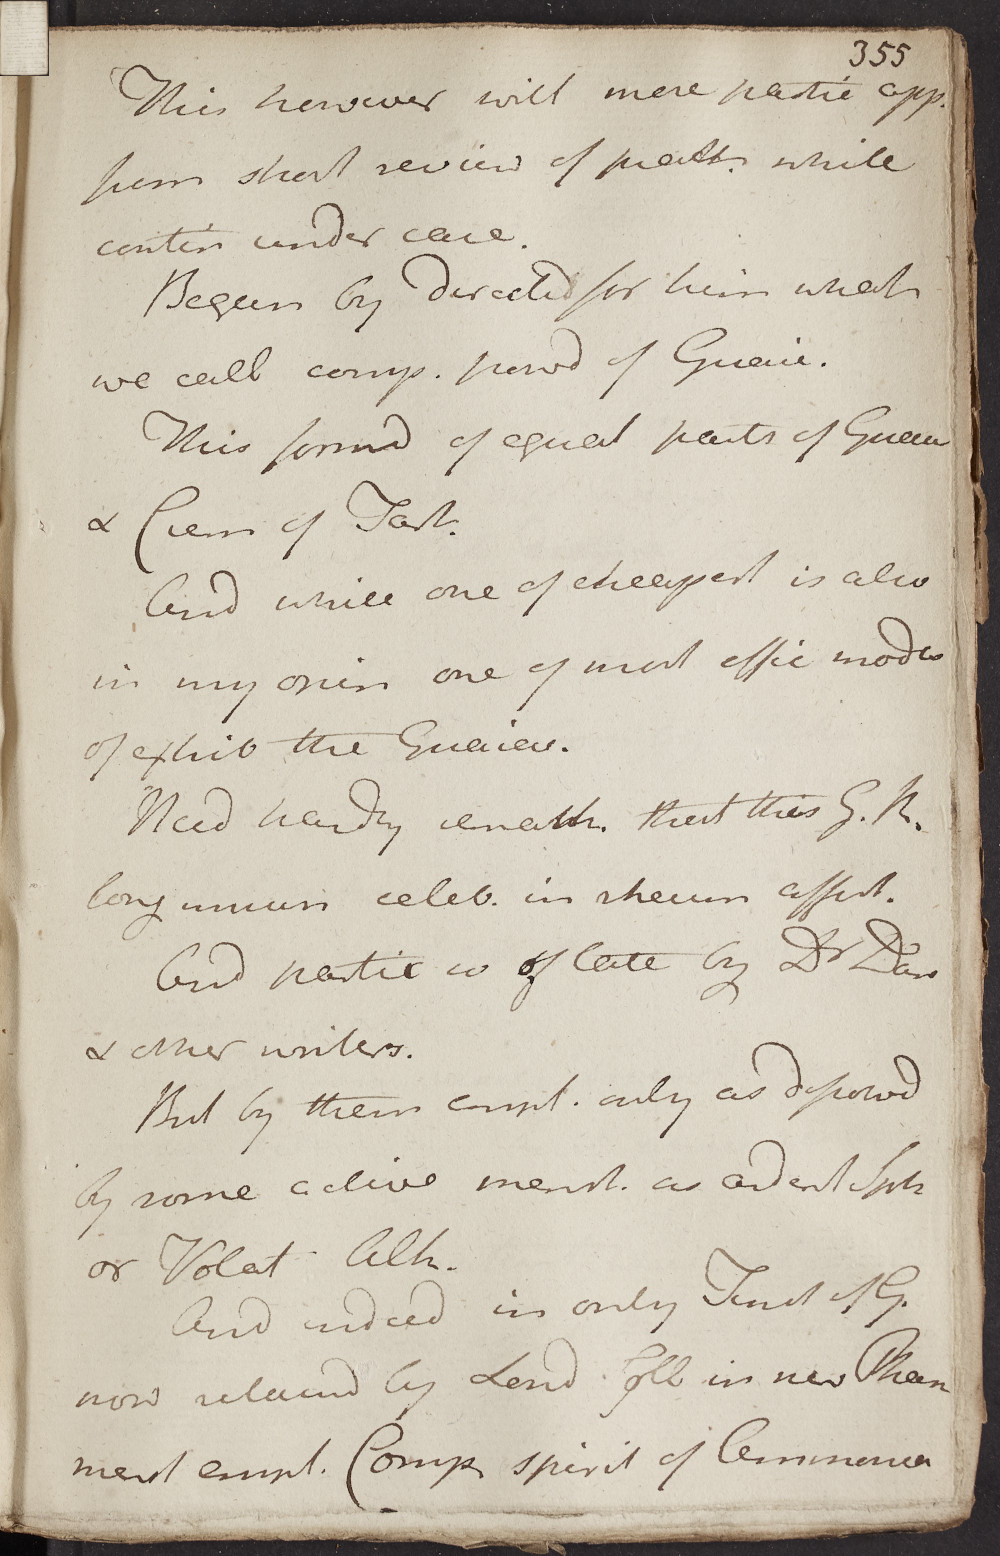 355
This however will more partic app.
from short review of pract. while
contin under care.
Begun by directed for him what
we call comp. powd of Guaic.
This formd of equal parts of Guaia
& Crem of Tart.
And while one of cheapest is also
in my opin one of most effic modes
of exhib the Guaiac.
Need hardly remark. that this G. R.
long celeb. in rheum affect.
And partic of late by Dr Daw
& other writers.
But by them empl. only as
by some active menst. as ardent Spts
or Volat Alk.
And indeed in only Tinct of G.
now retaind by Lond Coll in new Phar
menst empl. Comp spirit of Ammonia